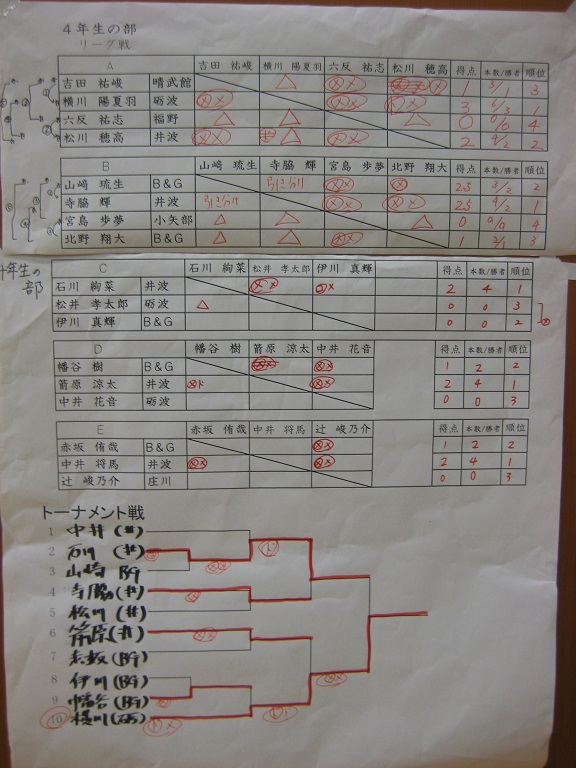 4年生の部
リーグ戦
A 吉田 祐峻 横川 陽夏羽 六反 祐志 松川 穂高 得点 本数/勝者 順位
吉田 祐峻 晴武館 △ 1 3/1 3
横川 陽夏羽 砺波 3 1
六反 祐志 福野 △ △ △ 0 0/0 4
松川 穂高 井波 △ 2 4/2 2
B 山﨑 琉生 寺脇 輝 宮島 歩夢 北野 翔大 得点 本数/勝者 順位
山﨑 琉生 B&G 引き分け 2.5 3/2 2
寺脇 輝 井波 引き分け 2.5 4/2 1
宮島 歩夢 小矢部 △ △ △ 0 0/0 4
北野 翔大 B&G △ △ 1 3
4年生の部
C 石川 絢菜 松井 孝太郎 伊川 真輝 得点 本数/勝者 順位
石川 絢菜 井波 2 4 1
松井 孝太郎 砺波 △ 0 0 3
伊川 真輝 B&G 0 0 2
D 幡谷 樹 箭原 涼太 中井 花音 得点 本数/勝者 順位
幡谷 樹 B&G 1 2 2
箭原 涼太 井波 2 4 1
中井 花音 砺波 0 0 3
E 赤坂 侑哉 中井 将馬 辻 峻乃介 得点 本数/勝者 順位
赤坂 侑哉 B&G 1 2 2
中井 将馬 井波 2 4 1
辻 峻乃介 庄川 0 0 3
トーナメント戦
1 中井 (井)
2 石川 (井)
3 山﨑 BG
4 寺脇 (井)
5 松川 (井)
6 箭原 (井)
7 赤坂 (BG)
8 伊川 (BG)
9 幡谷 (BG)
10 横川 (砺)